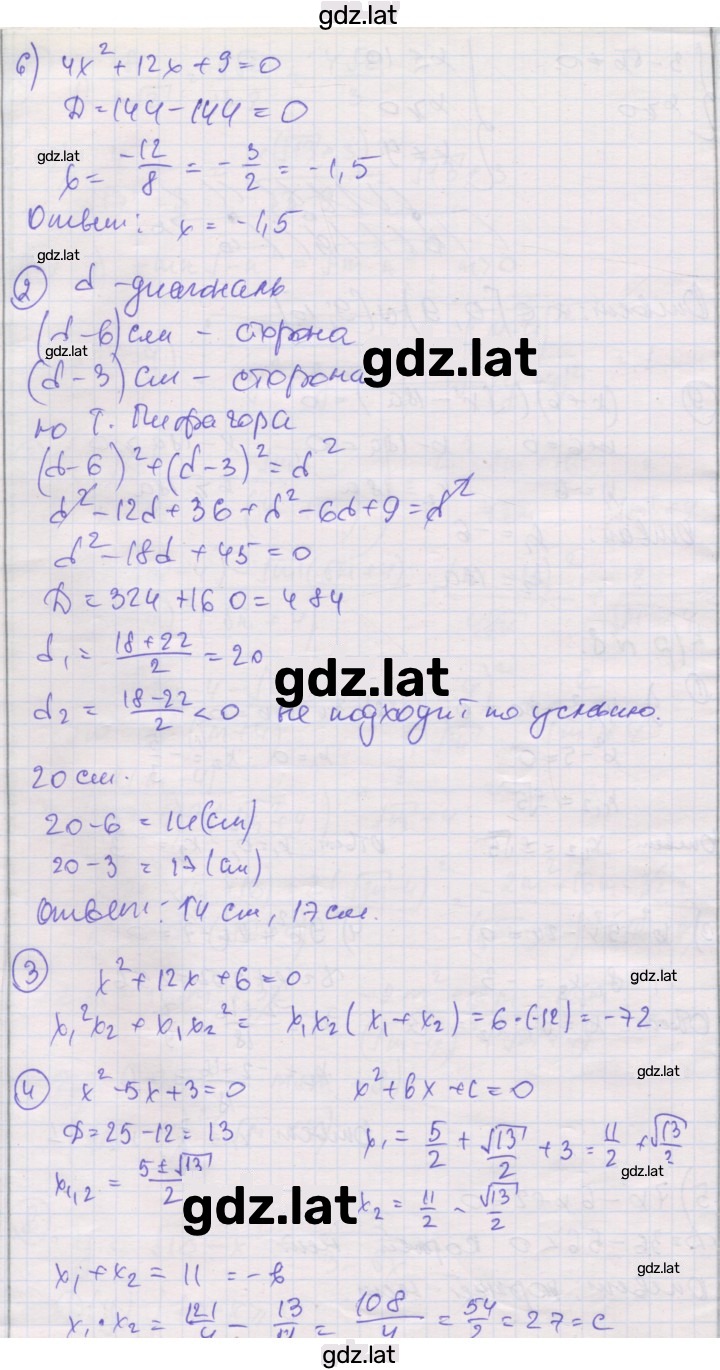 gdz.lat
6) 4x² + 12x + 9 = 0
D = 144 - 144 = 0
gdz.lat
x = -12/8 = -3/2 = -1,5
Ответ: x = -1,5
gdz.lat
2 d - диагональ
(d - 6) см - сторона
gdz.lat
gdz.lat
(d - 3) см - сторона
по т. Пифагора
(d - 6)² + (d - 3)² = d²
d² - 12d + 36 + d² - 6d + 9 = d²
d² - 18d + 45 = 0
D = 324 + 160 = 484
d₁ = (18 + 22)/2 = 20
gdz.lat
d₂ = (18 - 22)/2 < 0 не подходит по условию.
20 см.
20 - 6 = 14 (см)
20 - 3 = 17 (см)
Ответ: 14 см, 17 см.
3 x² + 12x + 6 = 0
gdz.lat
x₁²x₂ + x₁x₂² = x₁x₂(x₁ + x₂) = 6 · (-12) = -72.
gdz.lat
4 x² - 5x + 3 = 0 x² + bx + c = 0
D = 25 - 12 = 13 x₁ = 5/2 + √13/2 + 3 = 11/2 + √13/2
gdz.lat
x₁,₂ = (5 ± √13)/2 x₂ = 11/2 - √13/2
gdz.lat
x₁ + x₂ = 11 = -b
gdz.lat
x₁ · x₂ = 121/4 - 13/4 = 108/4 = 54/2 = 27 = c
gdz.lat